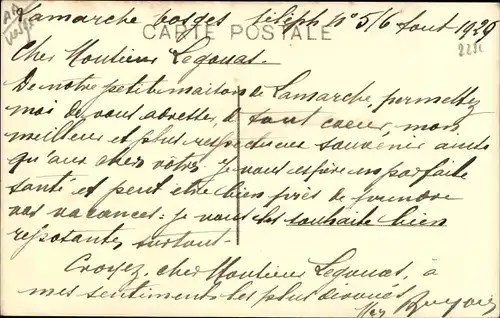 Lamarche Vosges téléph N° 5 / 6 Aout 1929
CARTE POSTALE
Cher Monsieur Legouas.
De notre petite maison de Lamarche, permettez
moi de vous adresser, de tout coeur, mon
meilleur et plus respectueux souvenir ainsi
qu'aux chers vôtres. Je vous espère en parfaite
santé et peut être bien près de prendre
vos vacances. Je vous les souhaite bien
reposantes surtout.
Croyez, cher Monsieur Legouas, à
mes sentiments les plus dévoués